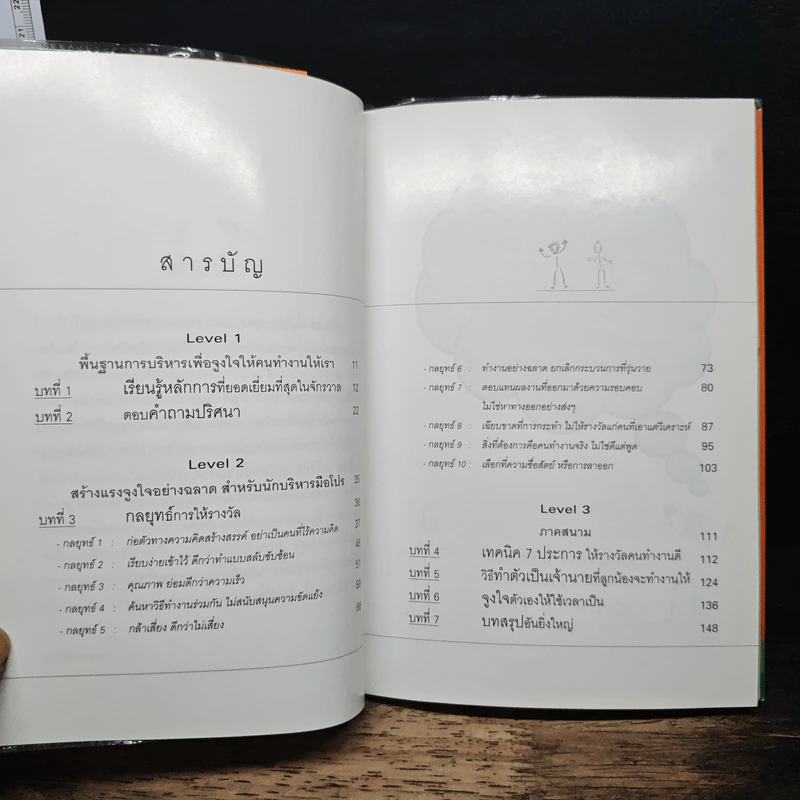 สารบัญ
Level 1
พื้นฐานการบริหารเพื่อจูงใจให้คนทำงานให้เรา 11
บทที่ 1 เรียนรู้หลักการที่ยอดเยี่ยมที่สุดในจักรวาล 12
บทที่ 2 ตอบคำถามปริศนา 22
Level 2
สร้างแรงจูงใจอย่างฉลาด สำหรับนักบริหารมือโปร 35
บทที่ 3 กลยุทธ์การให้รางวัล 36
- กลยุทธ์ 1 : ก่อตัวทางความคิดสร้างสรรค์ อย่าเป็นคนที่ไร้ความคิด 37
- กลยุทธ์ 2 : เรียบง่ายเข้าไว้ ดีกว่าทำแบบสลับซับซ้อน 46
- กลยุทธ์ 3 : คุณภาพ ย่อมดีกว่าความเร็ว 51
- กลยุทธ์ 4 : ค้นหาวิธีทำงานร่วมกัน ไม่สนับสนุนความขัดแย้ง 58
- กลยุทธ์ 5 : กล้าเสี่ยง ดีกว่าไม่เสี่ยง 66
- กลยุทธ์ 6 : ทำงานอย่างฉลาด ยกเลิกกระบวนการที่วุ่นวาย 73
- กลยุทธ์ 7 : ตอบแทนผลงานที่ออกมาด้วยความรอบคอบ 80
ไม่ใช่หาทางออกอย่างส่งๆ
- กลยุทธ์ 8 : เฉียบขาดที่การกระทำ ไม่ให้รางวัลแก่คนที่เอาแต่วิเคราะห์ 87
- กลยุทธ์ 9 : สิ่งที่ต้องการคือคนทำงานจริง ไม่ใช่ดีแต่พูด 95
- กลยุทธ์ 10 : เลือกที่ความซื่อสัตย์ หรือการลาออก 103
Level 3
ภาคสนาม 111
บทที่ 4 เทคนิค 7 ประการ ให้รางวัลคนทำงานดี 112
บทที่ 5 วิธีทำตัวเป็นเจ้านายที่ลูกน้องจะทำงานให้ 124
บทที่ 6 จูงใจตัวเองให้ใช้เวลาเป็น 136
บทที่ 7 บทสรุปอันยิ่งใหญ่ 148